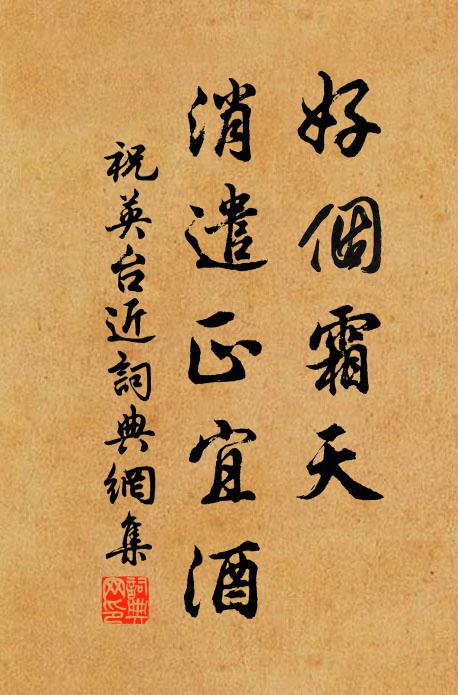 好個霜天
消遣正宜酒
祝英台近詞典網集
詞典
网印